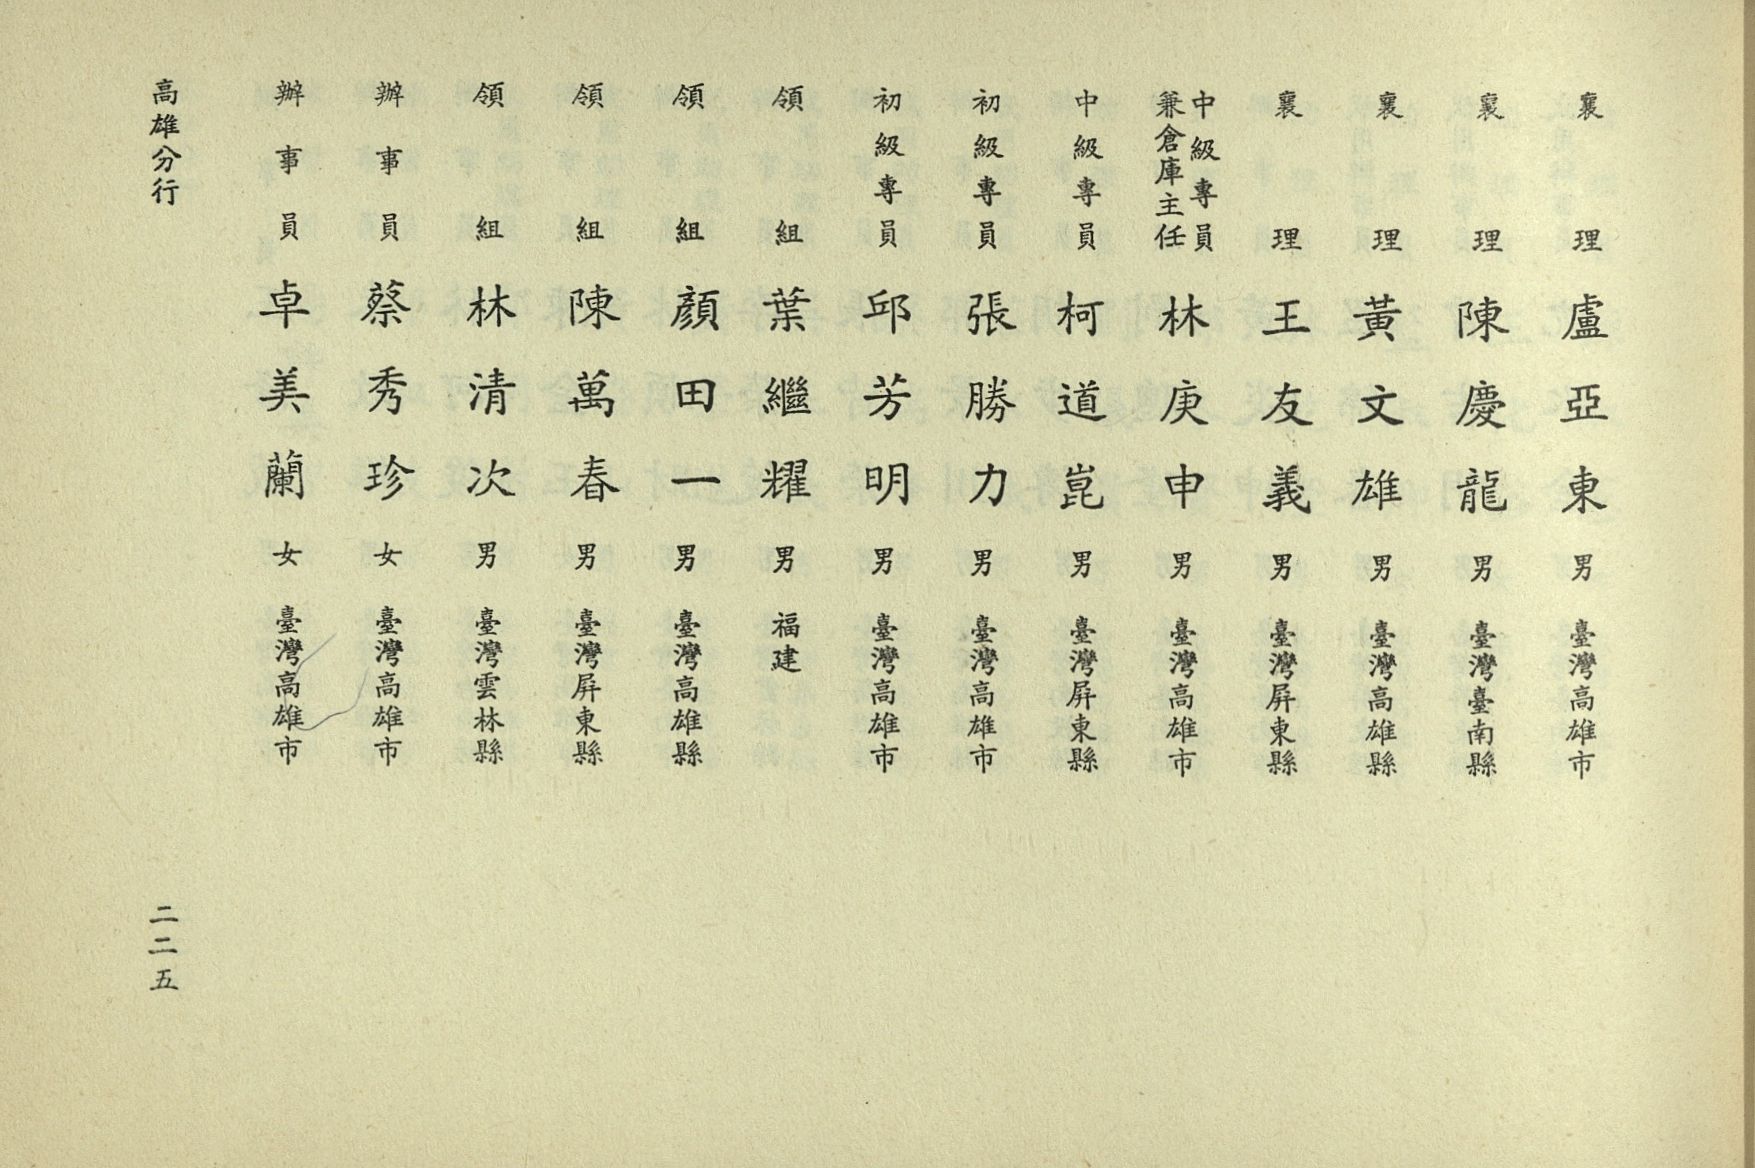 襄理 盧亞東 男 臺灣高雄市
襄理 陳慶龍 男 臺灣臺南縣
襄理 黃文雄 男 臺灣高雄縣
襄理 王友義 男 臺灣屏東縣
中級專員兼倉庫主任 林庚申 男 臺灣高雄市
中級專員 柯道崑 男 臺灣屏東縣
初級專員 張勝力 男 臺灣高雄市
初級專員 邱芳明 男 臺灣高雄市
領組 葉繼耀 男 福建
領組 顏田一 男 臺灣高雄縣
領組 陳萬春 男 臺灣屏東縣
領組 林清次 男 臺灣雲林縣
辦事員 蔡秀珍 女 臺灣高雄市
辦事員 卓美蘭 女 臺灣高雄市
高雄分行 二二五